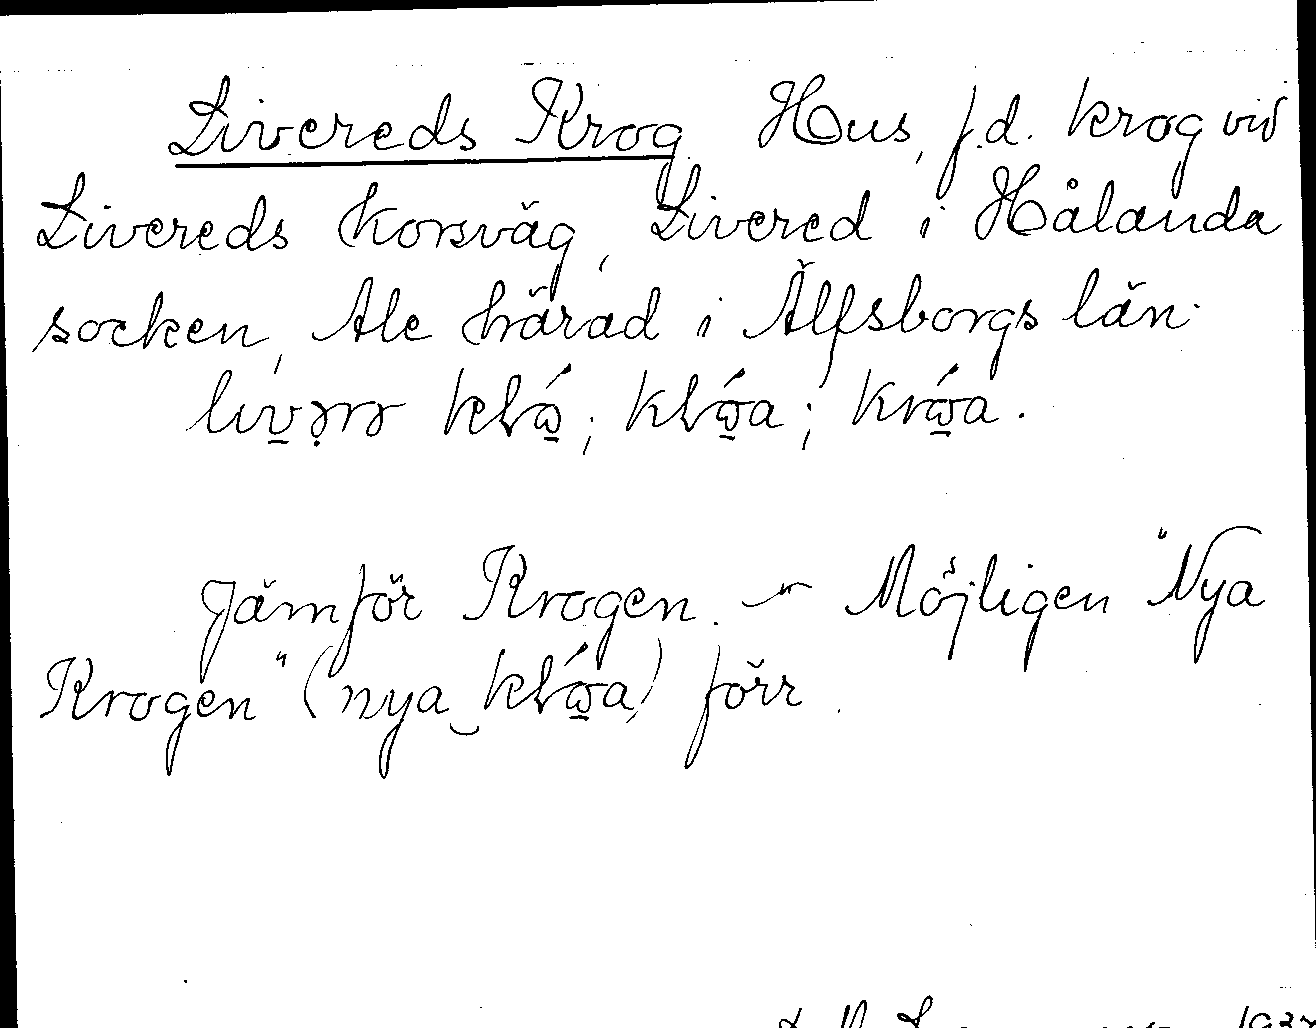 Livereds Krog. Hus, f.d. krog vid
Livereds korsväg, Livered i Hålanda
socken, Ale härad i Älfsborgs län.
Jämför Krogen. – Möjligen "Nya
Krogen" (nya) förr.